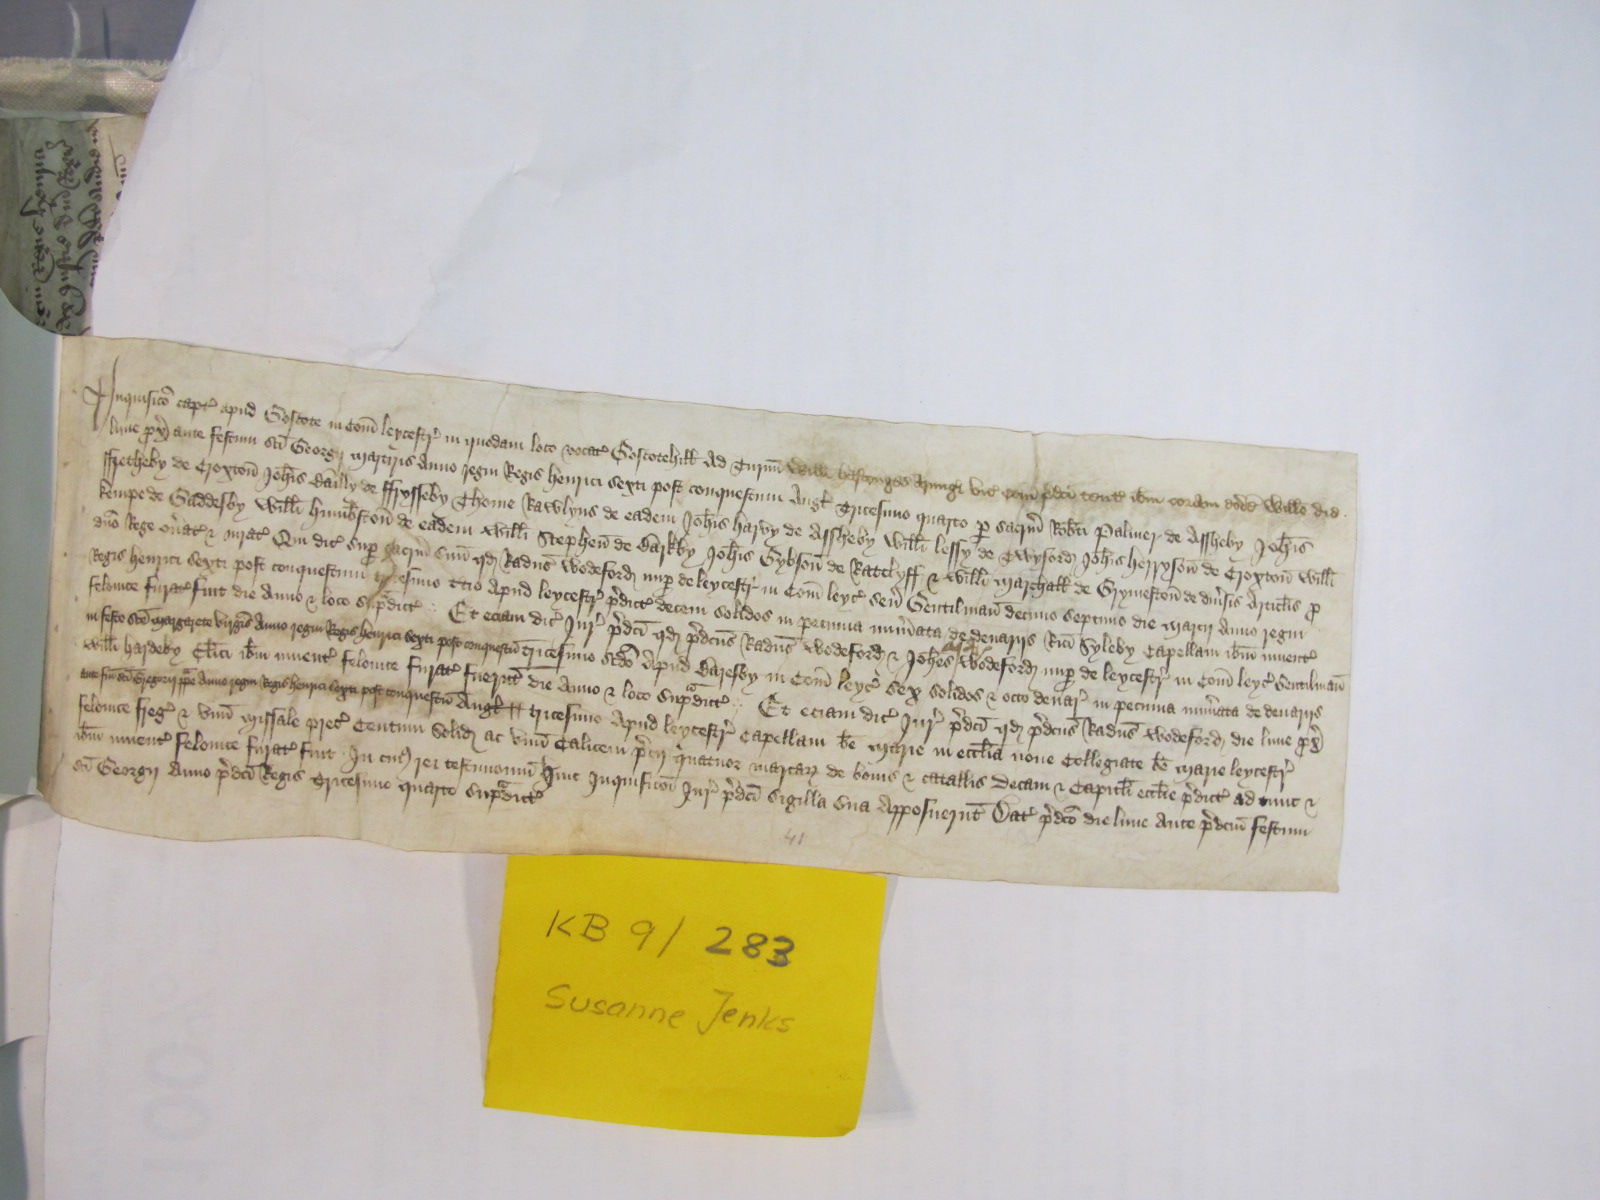 Inquisico capt apud Goscote in Com leycestr in quodam loco vocat Goscotehill Ad Turnu Willi vic Com pdci tent ibm coram eod Willo die
lune px ante festum Sci Georgii martiris Anno regni Regis henrici sexti post conquestum Angl Tricesimo quarto p sacrm Robti Palmer de Assheby Johis
ffretheby de Croxton Johis Bailly de ffrysseby Thome Rawlyns de eadem Johis harvy de Assheby Willi lessy de Twyford Johis heryson de Croxton Willi
kempe de Gaddesby Willi humbston de eadem Willi Stephen de Barkby Johis Gybson de Ratclyff & Willi Marchall de Grymeston de divsis Articlis p
dno Rege onat & iurat Qui dic sup sacrm suu qd Radus Wodeford nup de leycestr in Com leyc Gentilman decimo septimo die marcii Anno regni
Regis henrici sexti post conquestum tricesimo tcio Apud leycestr pdict decem solidos in pecunia numata de denariis Rici Syleby Capellani ibm invent
felonice furat fuit die Anno & loco supdict Et eciam dic Jur pdci qd pdcus Radus Wodeford & Johes Wodeford nup de leycestr in Com leyc Gentilman
in festo Sce Margarete virginis Anno regni Regis henrici sexti post conquestu tricesimo scdo Apud Baresby in Com leyc sex solidos & octo denar in pecunia numata de denariis
Willi hardeby Clici ibm invent felonice furat fuerunt die Anno & loco supdict Et eciam dic Jur pdci qd pdcus Radus Wodeford die lune px
ante fm Sci Gregorii ppe Anno regni Regis henrici sexti post conquestu Angl tricesimo Apud leycestr Capellam be Marie in ecclia nove Collegiate be Marie leycestr
felonice freg & unu Missale prec Centum Solid ac unu Calicem prcii quatuor marcar de bonis & catallis Decani & Capitli ecclie pdict ad tunc &
ibm invent felonice furat fuit In cuius rei testimonium huic Inquisicoi Jur pdci Sigilla Sua Apposuerunt Dat pdco die lune Ante pdcum festum
Sci Georgii Anno pdci Regis Tricesimo quarto supdict
41
KB 9/ 283
Susanne Jenks